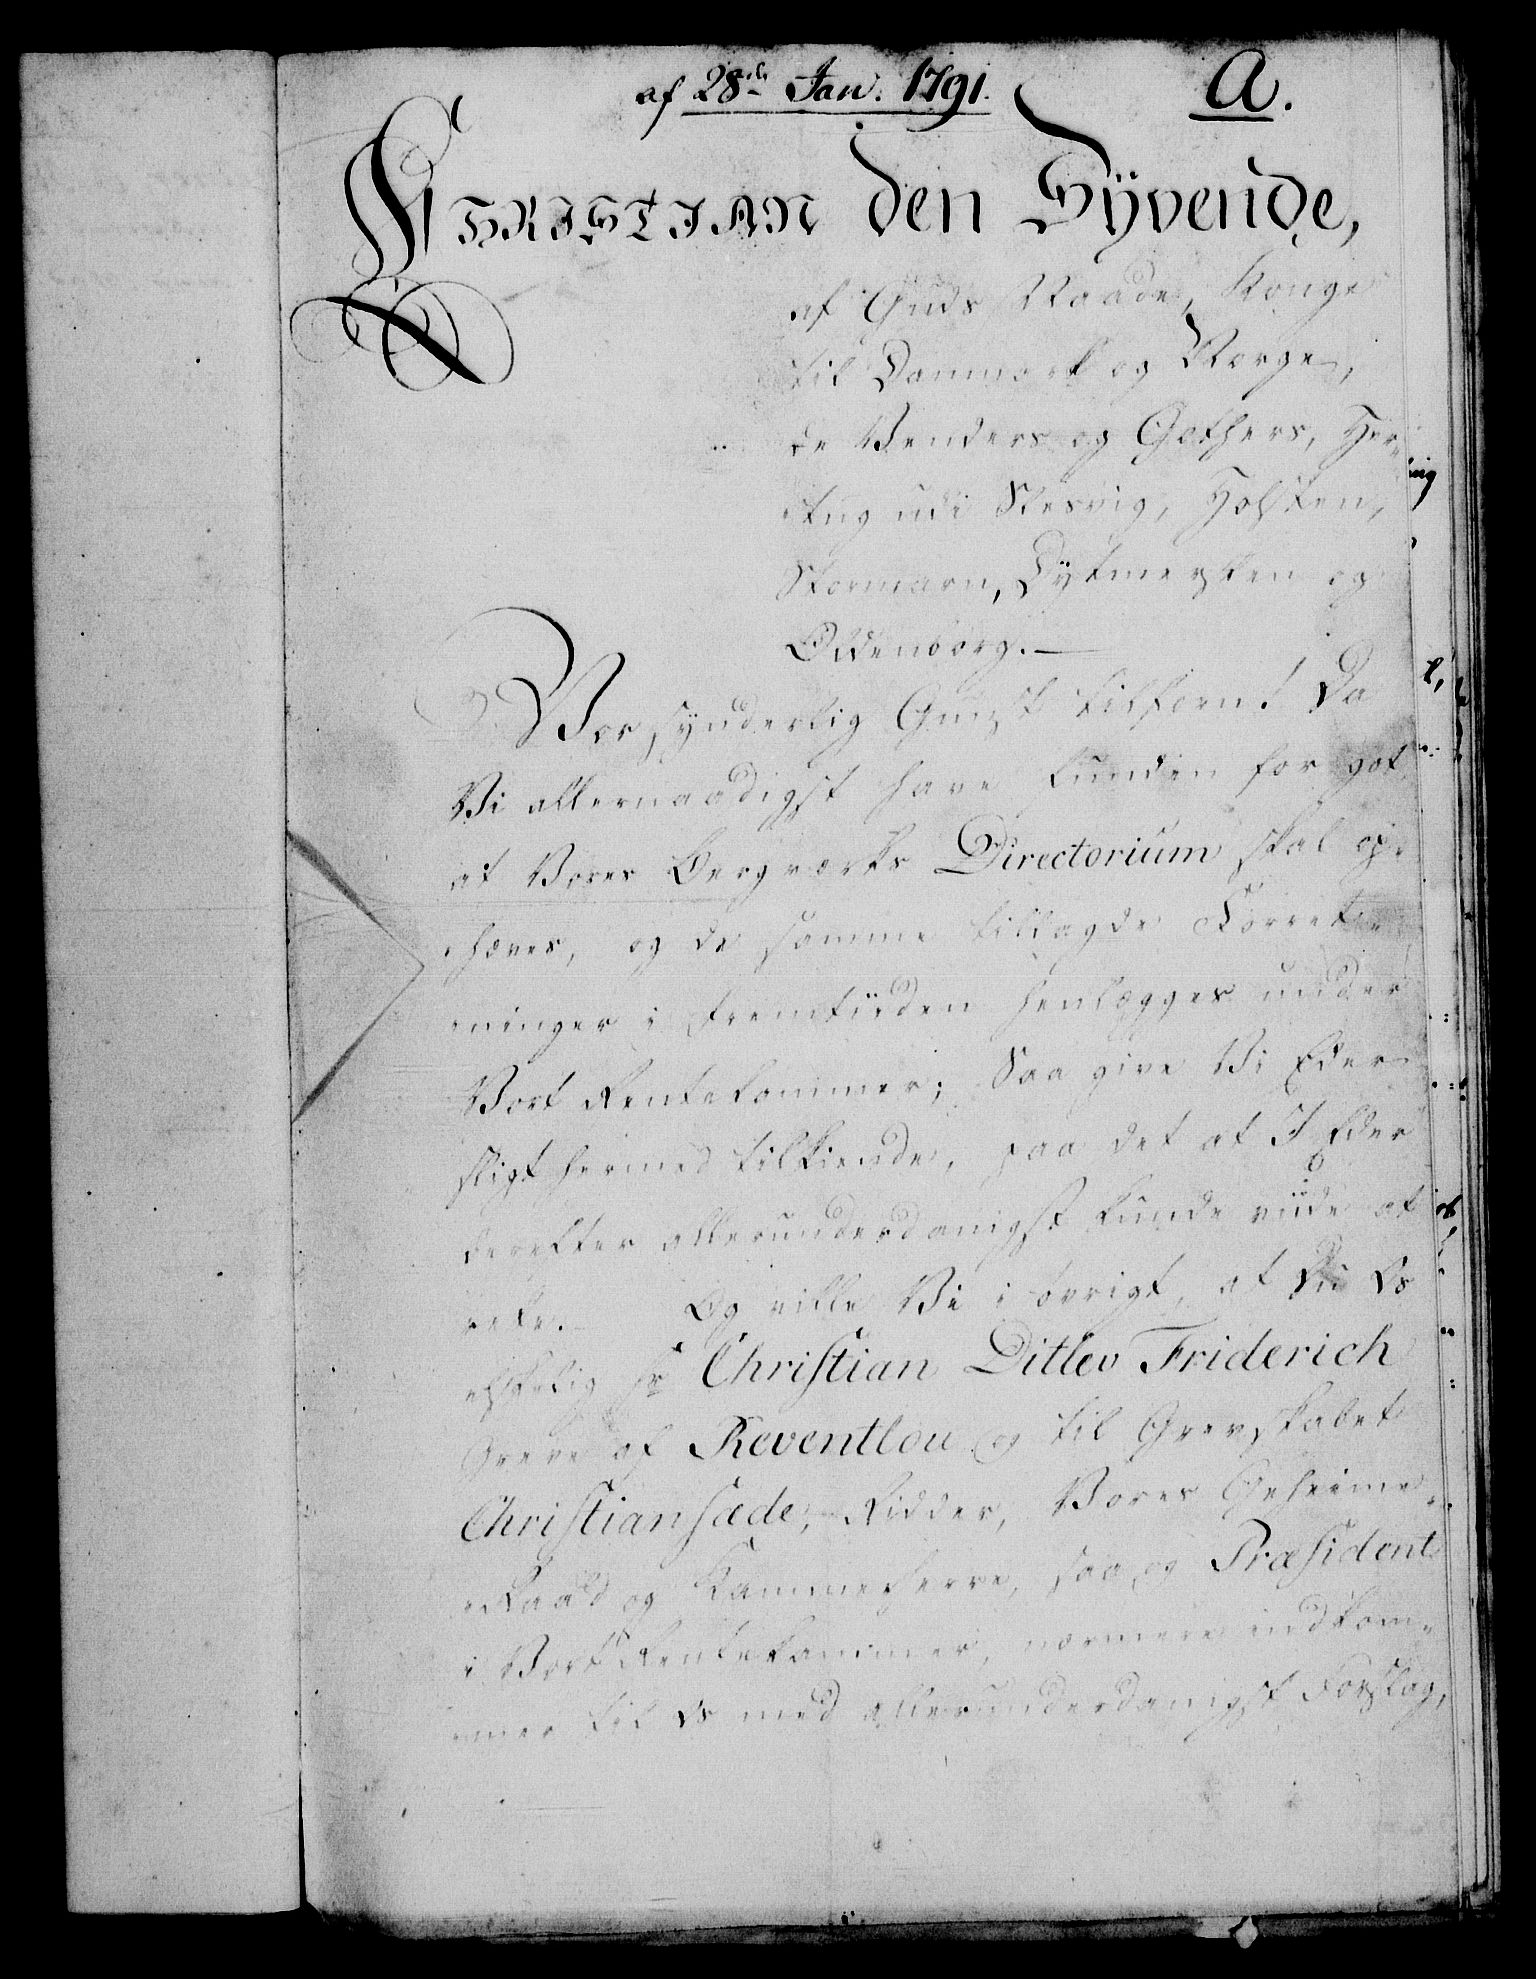 af 28de Jan: 1791.
A.
Christian den Syvende,
af Guds Naade, Konge
til Danmark og Norge,
de Venders og Gothers, Her-
tug udi Slesvig, Holsten,
Stormarn, Dytmersken og
Oldenborg.
Vor synderlig Gunst tilforn! Da
Vi allernaadigst have funden for got
at Vores Bergverks Directorium skal op-
hæves, og de samme tillagde Forret-
ninger i Fremtiiden henlægges under
Vort Rentekammer; Saa give Vi Eder
sligt hermed tilkiende, paa det at I Eder
derefter allerunderdanigst kunde viide at
rette. Og ville Vi i øvrigt, at Du Os
elskelig Hr Christian Ditlev Friderich
Greve af Reventlou og til Grevskabet
Christiansæde, Ridder, Vores Geheime-
Raad og Kammerherre, saa og Præsident
i Vort Rentekammer, nærmere indkom-
mer til Os med allerunderdanigst Forslag,